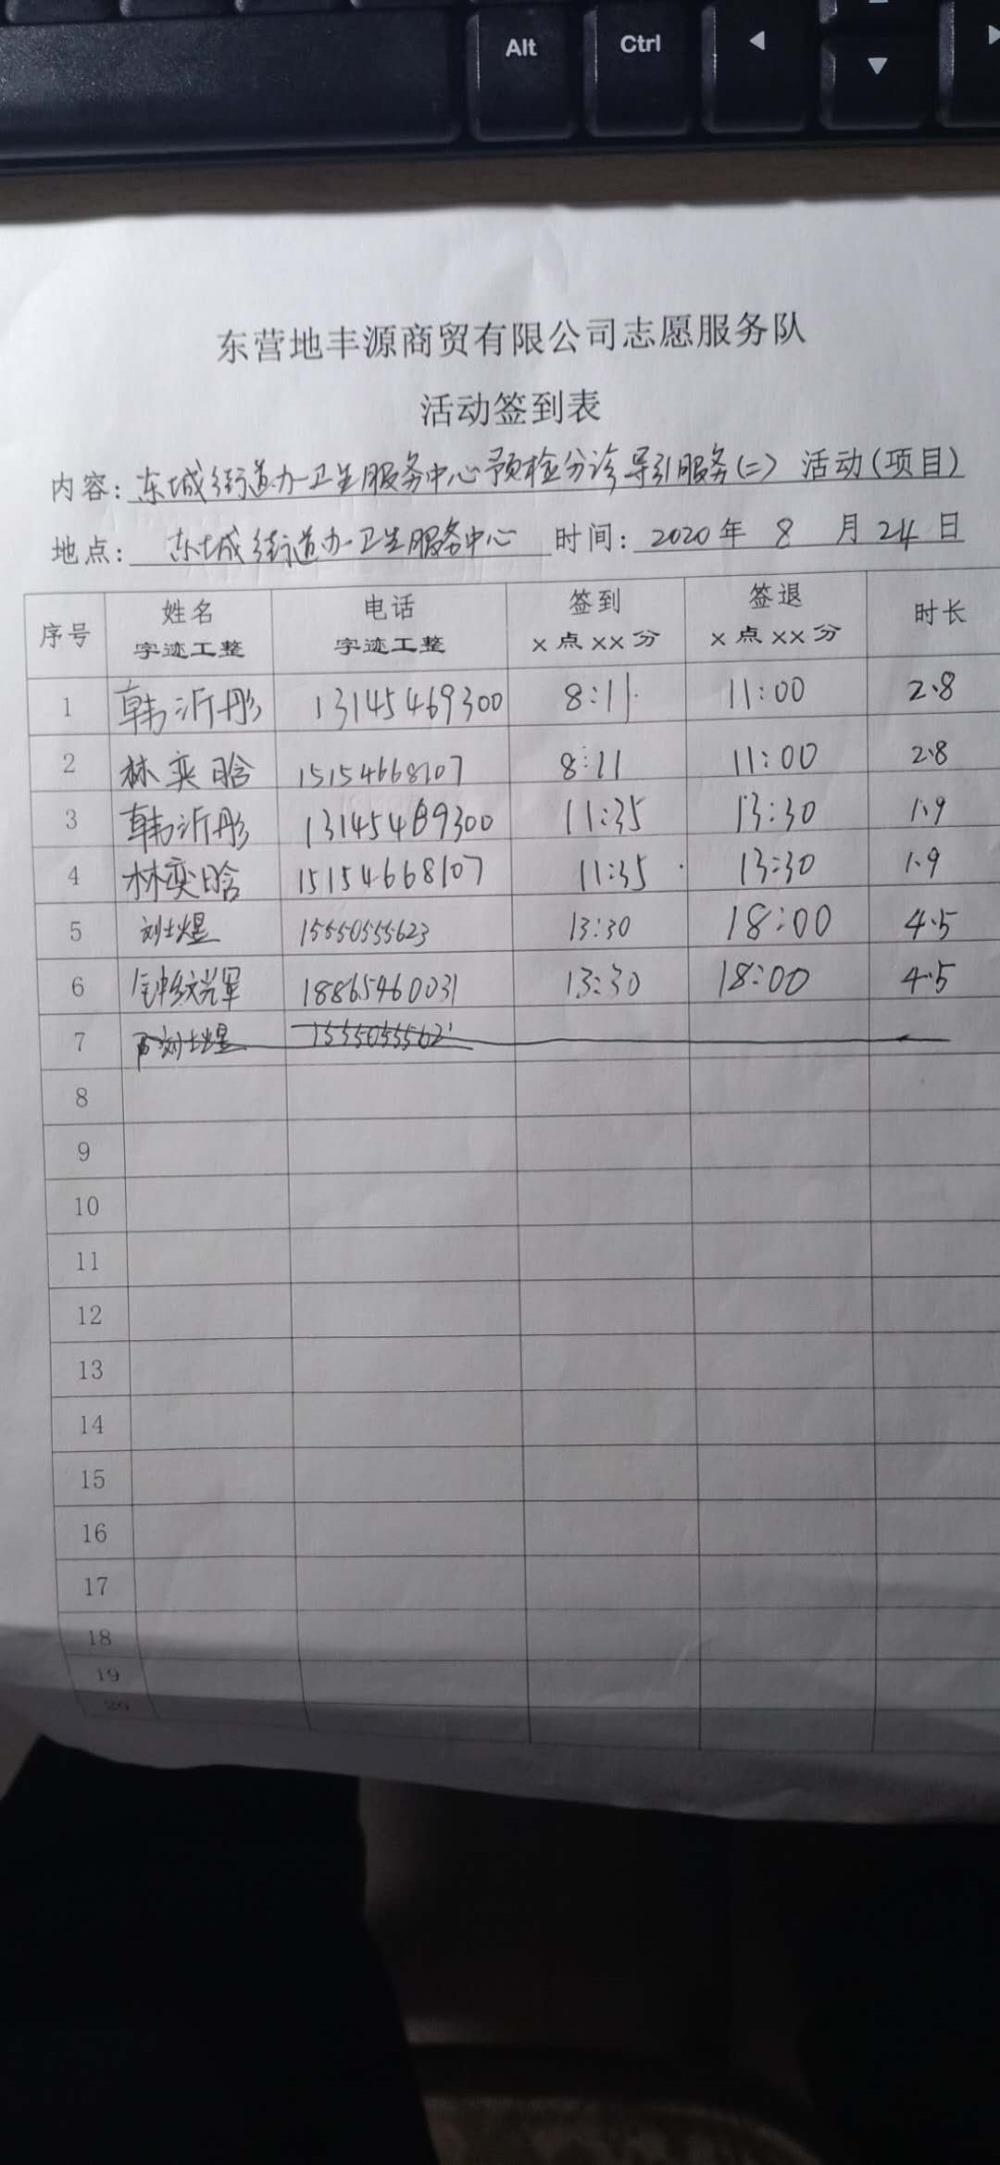 Alt Ctrl
东营地丰源商贸有限公司志愿服务队
活动签到表
内容：东城街道办卫生服务中心预检分诊导引服务(二) 活动（项目）
地点：东城街道办卫生服务中心 时间：2020年 8 月 24 日
序号 姓名 字迹工整 电话 字迹工整 签到 x点xx分 签退 x点xx分 时长
1 韩沂彤 13145469300 8:11 11:00 2.8
2 林奕晗 15154668107 8:11 11:00 2.8
3 韩沂彤 13145469300 11:35 13:30 1.9
4 林奕晗 15154668107 11:35 13:30 1.9
5 刘士煜 15550555623 13:30 18:00 4.5
6 18865460031 13:30 18:00 4.5
7 刘士煜
8
9
10
11
12
13
14
15
16
17
18
19
20